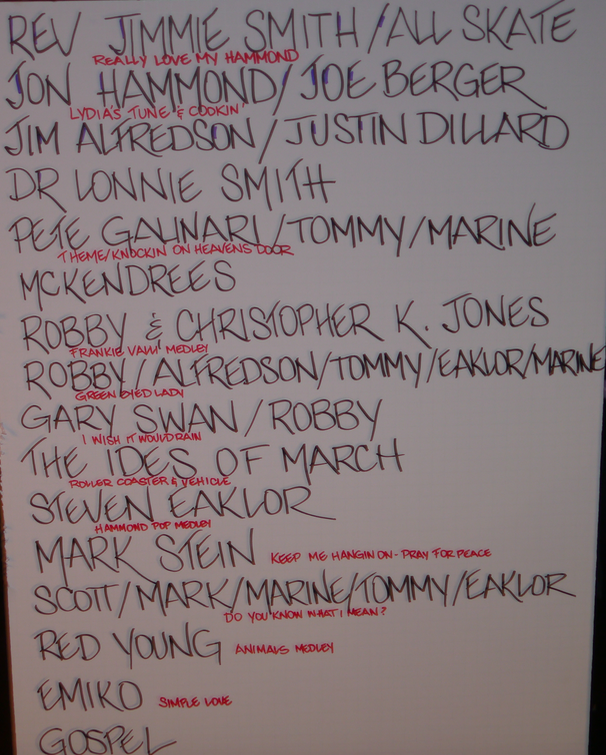 REV JIMMIE SMITH / ALL SKATE
REALLY LOVE MY HAMMOND
JON HAMMOND / JOE BERGER
LYDIA'S TUNE & COOKIN'
JIM ALFREDSON / JUSTIN DILLARD
DR LONNIE SMITH
PETE GALINARI / TOMMY / MARINE
THEME/KNOCKIN ON HEAVENS DOOR
MCKENDREES
ROBBY & CHRISTOPHER K. JONES
FRANKIE VALLI MEDLEY
ROBBY / ALFREDSON / TOMMY / EAKLOR / MARINE
GREEN EYED LADY
GARY SWAN / ROBBY
I WISH IT WOULD RAIN
THE IDES OF MARCH
ROLLER COASTER & VEHICLE
STEVEN EAKLOR
HAMMOND POP MEDLEY
MARK STEIN KEEP ME HANGIN ON - PRAY FOR PEACE
SCOTT / MARK / MARINE / TOMMY / EAKLOR
DO YOU KNOW WHAT I MEAN?
RED YOUNG ANIMALS MEDLEY
EMIKO SIMPLE LOVE
GOSPEL